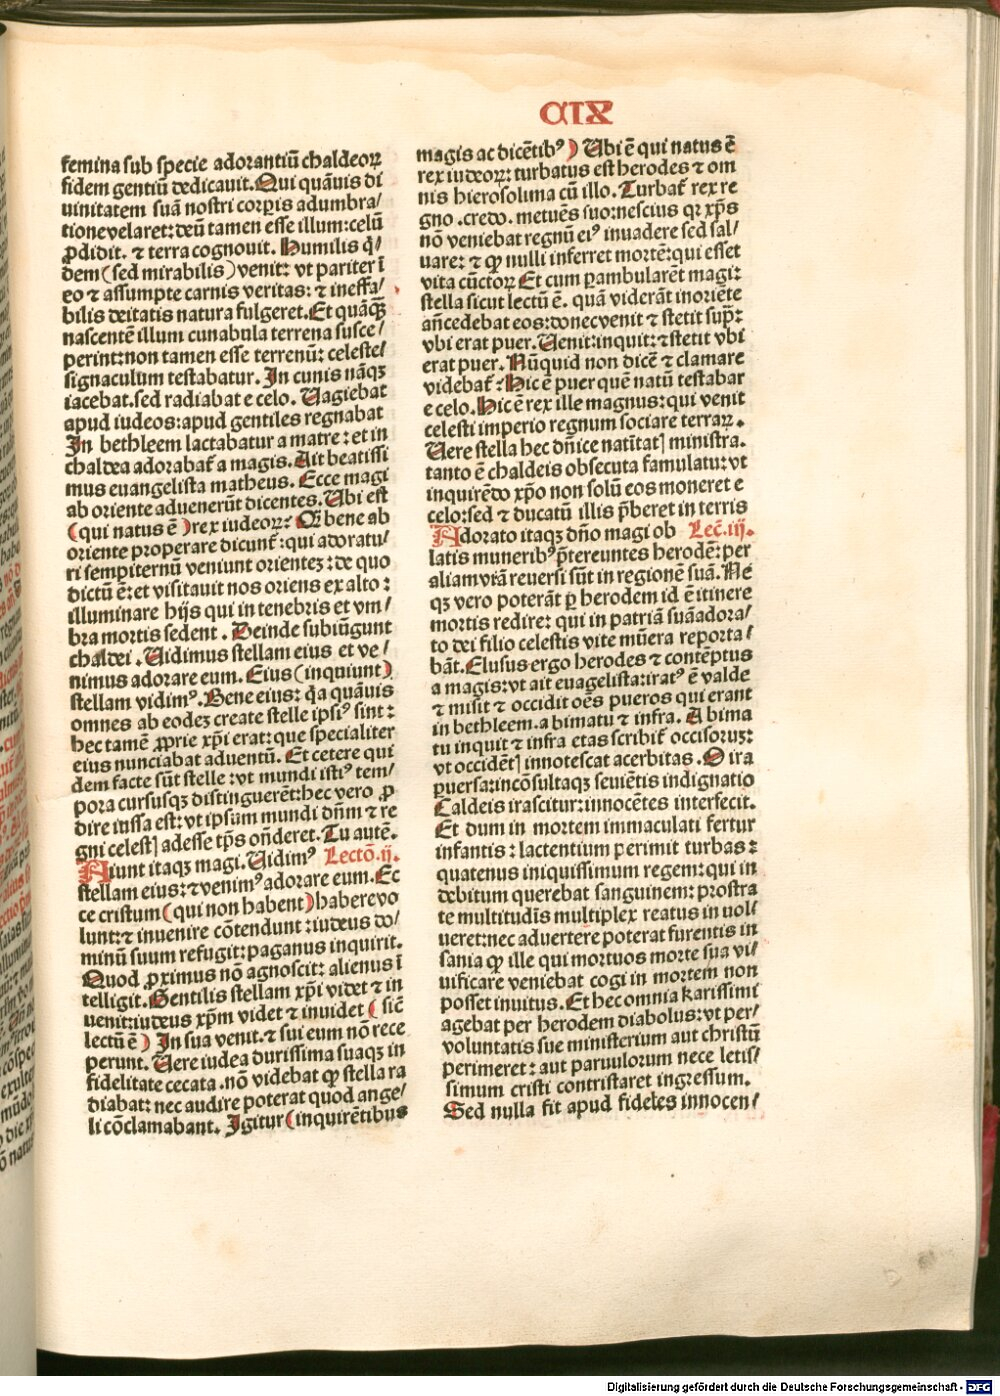 CIX
femina sub specie adorantiū chaldeoꝝ
fidem gentiū dedicauit. Qui quāuis di
uinitatem suā nostri corp̄is adumbra/
tione velaret: deū tamen esse illum: celū
ꝓdidit. ⁊ terra cognouit. Humilis q̇/
dem (sed mirabilis) venit: vt pariter ī
eo ⁊ assumpte carnis veritas: ⁊ ineffa/
bilis deitatis natura fulgeret. Et quāqȝ
nascentē illum cunabula terrena susce/
perint: non tamen esse terrenū: celeste
signaculum testabatur. In cunis nāqȝ
iacebat. sed radiabat e celo. Uagiebat
apud iudeos: apud gentiles regnabat
In bethleem lactabatur a matre: et in
chaldea adorabat᷑ a magis. Ait beatissi
mus euangelista matheus. Ecce magi
ab oriente aduenerūt dicentes. Ubi est
(qui natus ē) rex iudeoꝝ? Qꝫ bene ab
oriente properare dicunt᷑: qui adoratu/
ri sempiternū veniunt orientez: de quo
dictū ē: et visitauit nos oriens ex alto:
illuminare hijs qui in tenebris et vm/
bra mortis sedent. Deinde subiūgunt
chaldei. Uidimus stellam eius et ve/
nimus adorare eum. Eius (inquiunt)
stellam vidimꝰ. Bene eius: q̇a quāuis
omnes ab eodeȝ create stelle ipsiꝰ sint:
hec tamē ꝓprie xp̄i erat: que specialiter
eius nunciabat aduentū. Et cetere qui
dem facte sūt stelle: vt mundi istiꝰ tem/
pora cursusqȝ distinguerēt: hec vero ꝓ
dire iussa est: vt ipsum mundi dn̄m ⁊ re
gni celestꝭ adesse tp̄s on̄deret. Tu autē.
Aiunt itaqȝ magi. Uidimꝰ Lectō.ij.
stellam eius: ⁊ venimꝰ adorare eum. Ec
ce cristum (qui non habent) habere vo
lunt: ⁊ inuenire cōtendunt: iudeus do/
minū suum refugit: paganus inquirit.
Quod ꝓximus nō agnoscit: alienus ī
telligit. Gentilis stellam xp̄i videt ⁊ in
uenit: iudeus xp̄m videt ⁊ inuidet (sic̄
lectū ē) In sua venit. ⁊ sui eum nō rece
perunt. Uere iudea durissima suaqȝ in
fidelitate cecata. nō videbat qꝫ stella ra
diabat: nec audire poterat quod ange/
li cōclamabant. Igitur (inquirētibus
magis ac dicētibꝰ) Ubi ē qui natus ē
rex iudeoꝝ: turbatus est herodes ⁊ om
nis hierosolima cū illo. Turbat᷑ rex re
gno. credo. metuēs suo: nescius qꝛ xp̄s
nō veniebat regnū eiꝰ inuadere sed sal/
uare: ⁊ qꝫ nulli inferret mortē: qui esset
vita cūctoꝝ Et cum ꝑambularēt magi:
stella sicut lectū ē. quā viderāt in oriēte
an̄cedebat eos: donec venit ⁊ stetit sup̄:
vbi erat puer. Uenit: inquit: ⁊ stetit vbi
erat puer. Nūquid non dicē ⁊ clamare
videbat᷑: Hic ē puer quē natū testabar
e celo. Hic ē rex ille magnus: qui venit
celesti imperio regnum sociare terraꝝ.
Uere stella hec dn̄ice natītatꝭ ministra.
tanto ē chaldeis obsecuta famulatu: vt
inquirēdo xp̄o non solū eos moneret e
celo: sed ⁊ ducatū illis p̄beret in terris
Adorato itaqȝ dn̄o magi ob Lec̄.iij.
latis muneribꝰ p̄tereuntes herodē: per
aliam viā reuersi sūt in regionē suā. Ne
qȝ vero poterāt ꝑ herodem id ē itinere
mortis redire: qui in patriā suā adora/
to dei filio celestis vite mūera reporta/
bāt. Elusus ergo herodes ⁊ contēptus
a magis: vt ait euāgelista: iratꝰ ē valde
⁊ misit ⁊ occidit oēs pueros qui erant
in bethleem. a bimatu ⁊ infra. A bima
tu inquit ⁊ infra etas scribit᷑ occisoruȝ:
vt occidētꝭ innotescat acerbitas. O ira
ꝑuersa: incōsultaqȝ seuiētis indignatio
Caldeis irascitur: innocētes interfecit.
Et dum in mortem immaculati fertur
infantis: lactentium perimit turbas:
quatenus iniquissimum regem: qui in
debitum querebat sanguinem: prostra
te multitudīs multiplex reatus in uol/
ueret: nec aduertere poterat furentis in
sania qꝫ ille qui mortuos morte sua vi/
uificare veniebat cogi in mortem non
posset inuitus. Et hec omnia karissimi
agebat per herodem diabolus: vt per/
voluntatis sue ministerium aut christū
perimeret: aut paruulorum nece letis/
simum cristi contristaret ingressum.
Sed nulla fit apud fideles innocen/
Digitalisierung gefördert durch die Deutsche Forschungsgemeinschaft - DFG